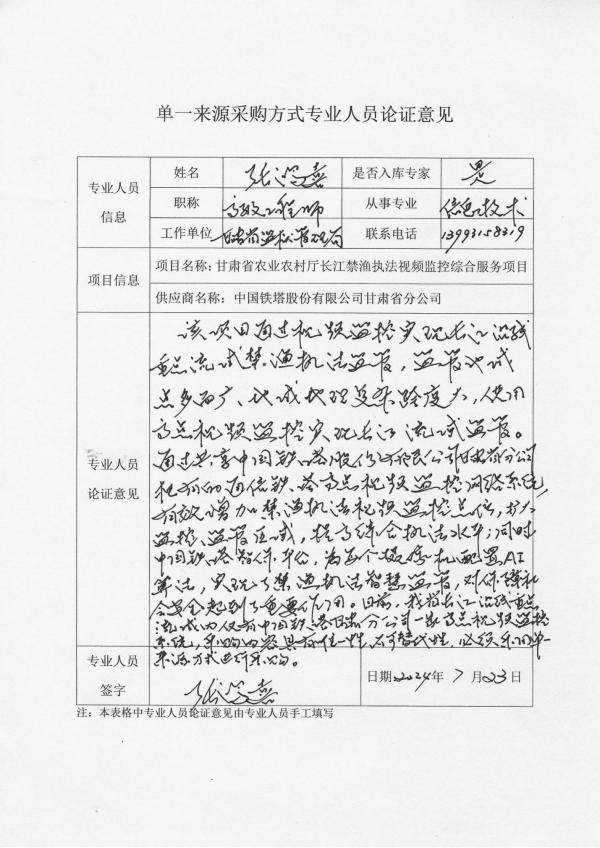 单一来源采购方式专业人员论证意见
专业人员信息
姓名 张 嘉 是否入库专家 是
职称 高级工程师 从事专业 信息技术
工作单位 甘肃省监狱管理局 联系电话 13993158319
项目信息
项目名称：甘肃省农业农村厅长江禁渔执法视频监控综合服务项目
供应商名称：中国铁塔股份有限公司甘肃省分公司
专业人员论证意见
该项目通过视频监控实现长江沿线
重点流域禁渔执法监管，监管地域
点多面广、地域地理复杂跨度大，使用
高点视频监控实现长江流域监管。
通过共享中国铁塔股份有限公司甘肃省分公司
现有的通信铁塔高点视频监控网络系统，
有效增加禁渔执法视频监控点位，扩大
监控、监管区域，提高综合执法水平；同时
中国铁塔智 平台，为每个摄像机配置AI
算法，实现了禁渔执法智慧监管，对保障社
会安全起到了重要作用。目前，我省长江沿线重点
流域内仅有中国铁塔甘肃分公司一家高点视频监控
系统，采购内容具有唯一性、不可替代性，必须采用单一
来源方式进行采购。
专业人员签字
张 嘉
日期2024年7月23日
注：本表格中专业人员论证意见由专业人员手工填写